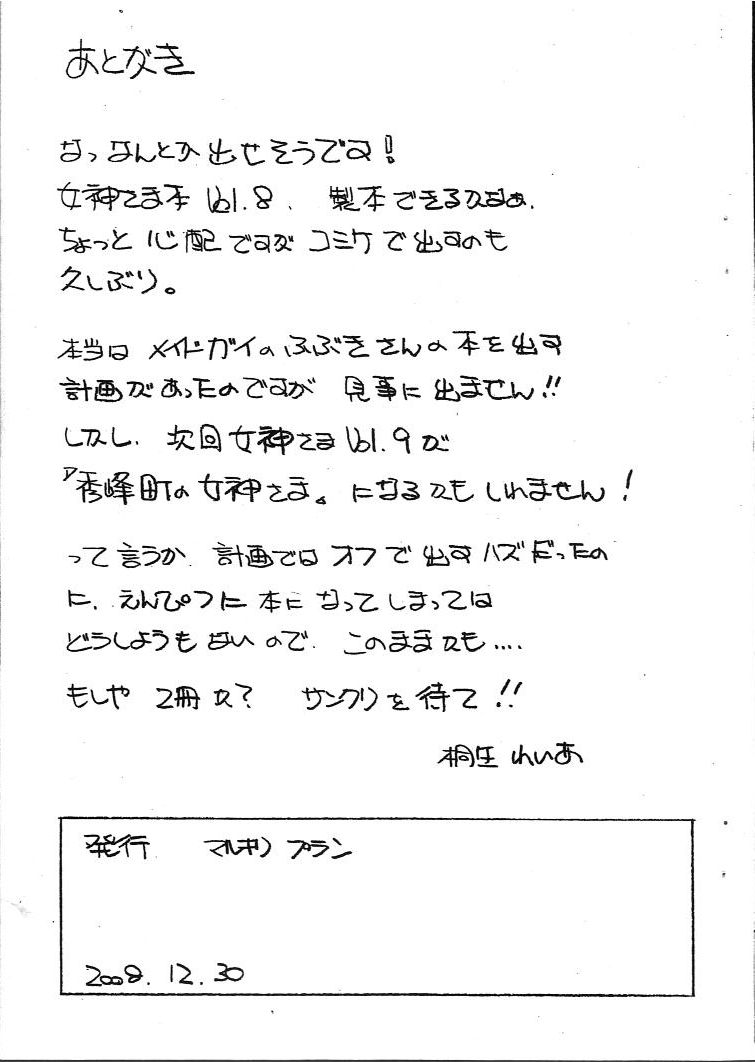 あとがき
なっなんとか出せそうです!
女神さま本 Vol.8、製本できるかなぁ、
ちょっと心配ですが コミケで出すのも
久しぶり。
本当は メイドガイのふぶきさんの本を出す
計画があったのですが 見事に出ません!!
しかし、次回女神さま Vol.9 が
『秀峰町の女神さま』になるかもしれません!
って言うか 計画ではオフで出すハズだったの
に、えんぴつに本になってしまっては
どうしようもないので、このままかも....
もしや 2冊か? サンクリを待て!!
桐生れいあ
発行 マルキリプラン
2008.12.30